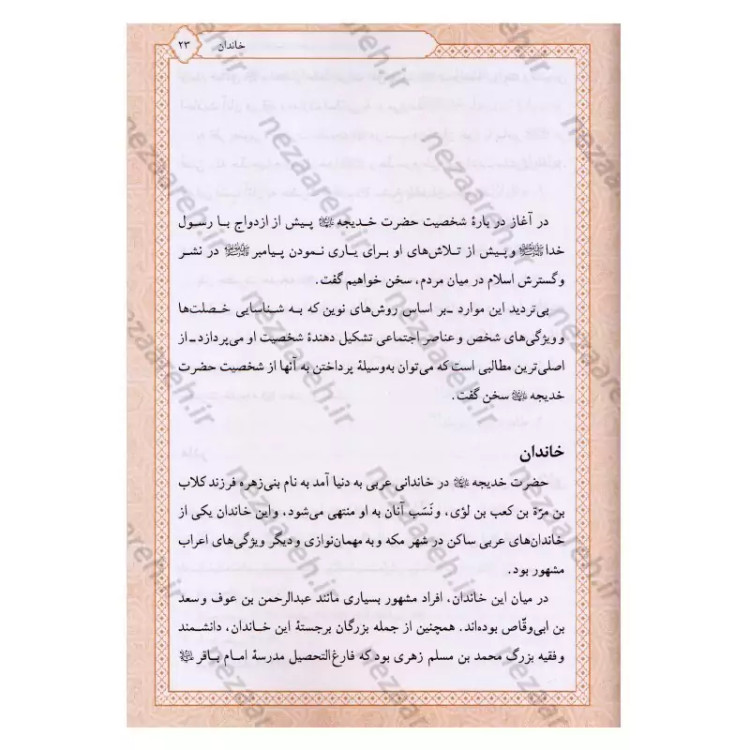 خاندان ۲۳
در آغاز دربارۀ شخصیت حضرت خدیجه پیش از ازدواج با رسول
خدا ﷺ و پیش از تلاش‌های او برای یاری نمودن پیامبر ﷺ در نشر
و گسترش اسلام در میان مردم، سخن خواهیم گفت.
بی‌تردید این موارد ـ بر اساس روش‌های نوین که به شناسایی خصلت‌ها
و ویژگی‌های شخص و عناصر اجتماعی تشکیل دهندۀ شخصیت او می‌پردازد ـ از
اصلی‌ترین مطالبی است که می‌توان به‌وسیلۀ پرداختن به آنها از شخصیت حضرت
خدیجه سخن گفت.
خاندان
حضرت خدیجه در خاندانی عربی به دنیا آمد به نام بنی‌زهره فرزند کلاب
بن مرّة بن کعب بن لؤی، و نَسَب آنان به او منتهی می‌شود، و این خاندان یکی از
خاندان‌های عربی ساکن در شهر مکه و به مهمان‌نوازی و دیگر ویژگی‌های اعراب
مشهور بود.
در میان این خاندان، افراد مشهور بسیاری مانند عبدالرحمن بن عوف و سعد
بن ابی‌وقّاص بوده‌اند. همچنین از جمله بزرگان برجستۀ این خاندان، دانشمند
و فقیه بزرگ محمد بن مسلم زهری بود که فارغ‌التحصیل مدرسۀ امام باقر
nezaareh.ir